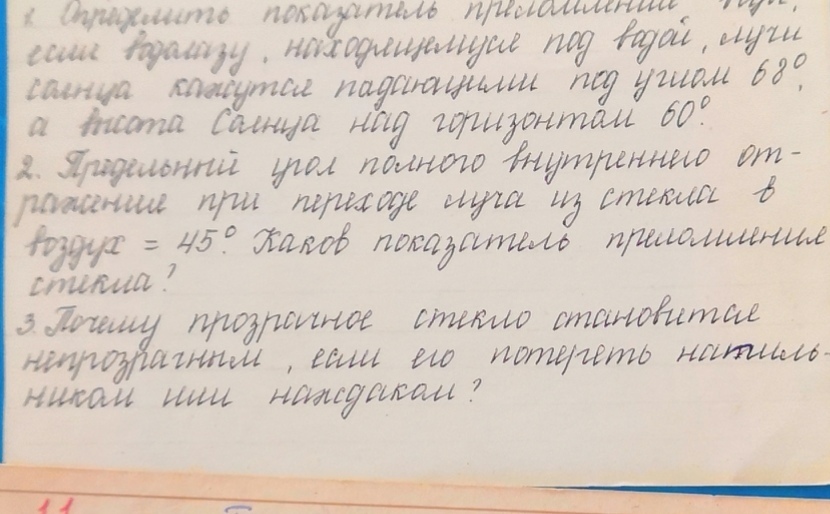 1. Определить показатель преломления воды,
если водолазу, находящемуся под водой, лучи
солнца кажутся падающими под углом 68°,
а высота Солнца над горизонтом 60°.
2. Предельный угол полного внутреннего от-
ражения при переходе луча из стекла в
воздух = 45°. Каков показатель преломления
стекла?
3. Почему прозрачное стекло становится
непрозрачным, если его потереть напиль-
ником или наждаком?
11